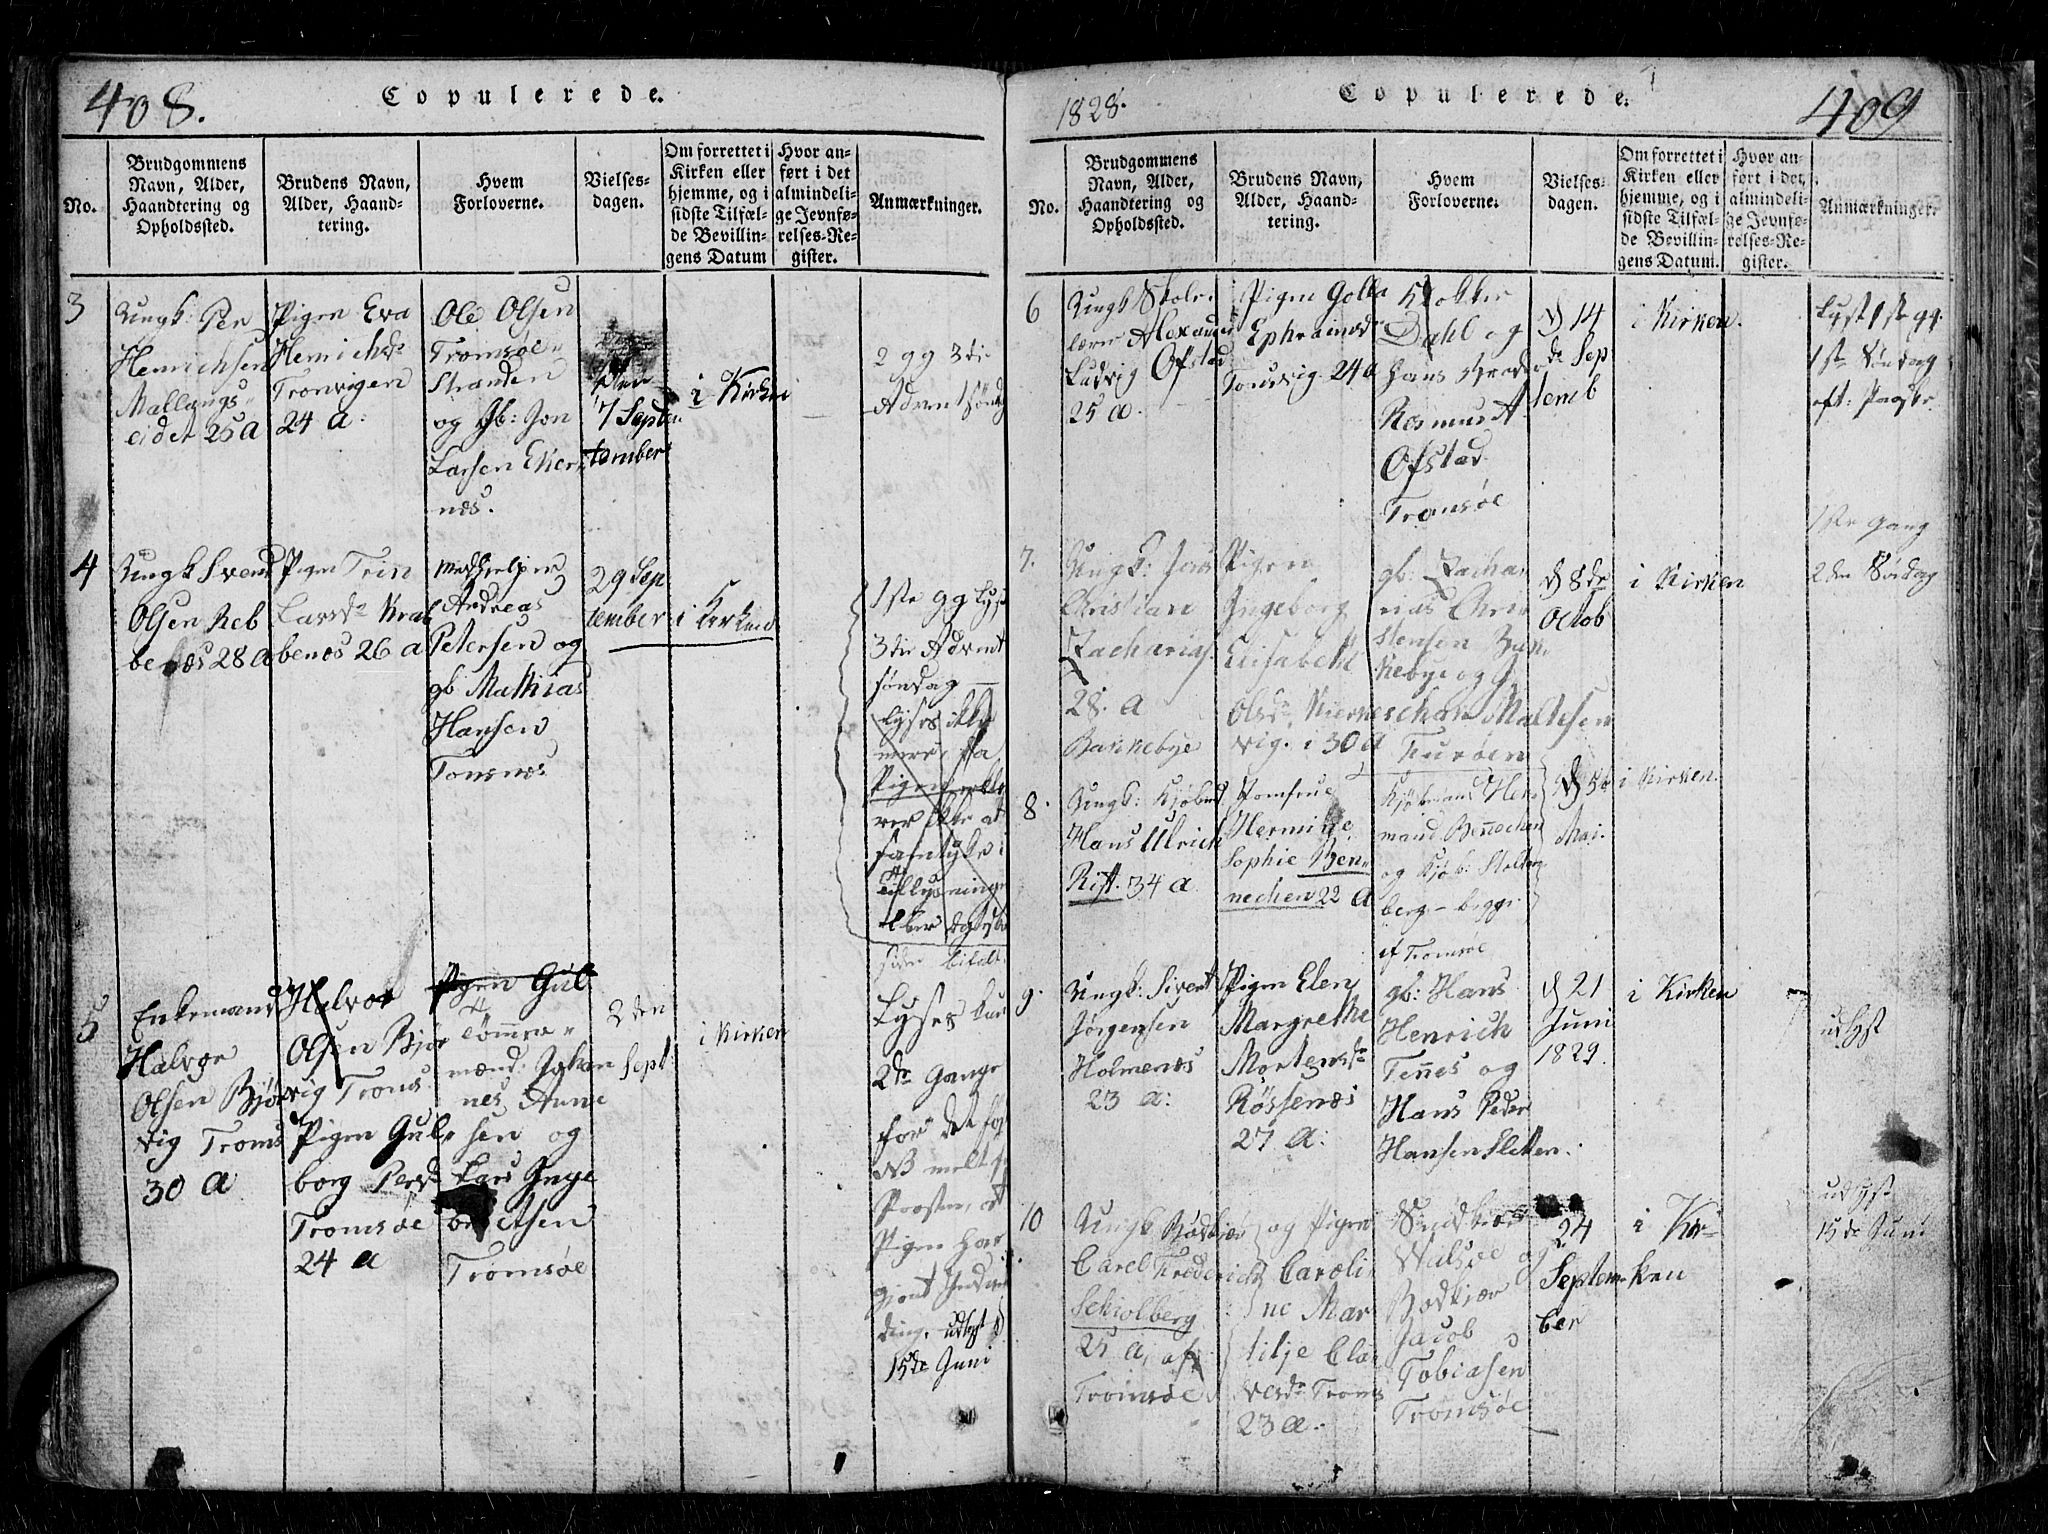 408.
Copulerede.
No.
Brudgommens
Navn, Alder,
Haandtering og
Opholdssted.
Brudens Navn,
Alder, Haand-
tering.
Hvem
Forloverne.
Vielses-
dagen.
Om forrettet i
Kirken eller
hjemme, og i
sidste Tilfæl-
de Bevillin-
gens Datum
Hvor an-
ført i det
almindeli-
ge Jevnfø-
relses-Re-
gister.
Anmærkninger.
3
Ungk: Per
Henrichsen
Mallangs-
eidet 25 a
Pigen Eva
Henrichsdr
Tronvigen
24 a.
Ole Olsen
Tromsøe-
Stranden
og gb: Jon
Larsen Eker-
nes.
den
7 Septem
tember
i Kirken
2 gg 3die
Advent Sønda
4
Ungk Svend
Olsen Reb
benæs 28 a
Pigen Trin
Larsdr Krab
benæs 26 a
Medhielper
Andreas
Petersen og
gb Mathias
Hansen
Tonsnæs
29 Sep
tember
i Kirken
1ste gg lyst
3die Advent
søndag —
lyses ikke
mere, da
Pigen
ikke at
samtykke i
5
Enkemand
Halvor
Olsen Bjør
vig Troms
30 a
Halvor
Olsen Bjør
vig Troms
Pigen Gul-
borg Persdr
Tromsøe
24 a
Pigen Gul
tømmer-
mænd: Johan
nes Arne
sen og
Lars Inge
bretsen
Tromsøe
2den
Sept:
i Kirken
Lyses kun
2de Gange
for det før-
ste melt
Prosten, at
Pigen har
giort Inden
ding. udlyst
15de Juni
1828.
Copulerede.
409
No.
Brudgommens
Navn, Alder,
Haandtering og
Opholdssted.
Brudens Navn,
Alder, Haand-
tering.
Hvem
Forloverne.
Vielses-
dagen.
Om forrettet i
Kirken eller
hjemme, og i
sidste Tilfæl-
de Bevillin-
gens Datum.
Hvor an-
ført i det
almindeli-
ge Jevnfø-
relses-Re-
gister.
Anmærkninger.
6
Ungk Skole-
lærer Alexander
Ludvig Ofstad
25 a.
Pigen Golla
Ephraimsdr
Tonsvig 24 a
Klokker
Dahl og
Hans Broder
Rasmus A
Ofstad
Tromsøe
d 14
de Sep
temb
i Kirken.
Lyst 1ste gg.
1ste Søndag
eft: Paaske
7.
Ungk: Jens
Christian
Zacharias.
28. a
Bankebye
Pigen
Ingeborg
Elisabeth
Olsdr, Kierkes
vig. i 30 a
gb: Zacha-
rias Chri-
stensen Ban-
kebye og J
chan Maltesen
d 8de
Octob
i Kirken
1ste Gang
2den Søndag
8.
Ungk: Kjøbmd
Hans Ulrich
Rift. 34 a
Jomfrue
Hermine
Sophie Ben-
nechen 22 a
Kjøbmand Her
mand Bennechen
og Kjøb: Stolten
berg – begge
af Tromsøe
Mai.
i Kirken.
9.
Ungk: Sivert
Jørgensen
Holmenæs
23 a:
Pigen Elen
Margrethe
Mortensdr
Røssenæs
27 a:
gb: Hans
Henrich
Tennes og
Hans Peder
Hansen Sletten.
d 21
Juni
1829.
i Kirken
udlyst
10
Ungk Bødkjær
Carel Frederich
Schiolberg
25 a, af
Tromsøe
og Pigen
Caroli-
ne Mar
tilje Cla-
vesdr Troms
23 a.
og
Bødkiær
Jacob
Tobiasen
Tromsøe
24
Septem-
ber
i Kir-
ken
udlyst
15de Juni